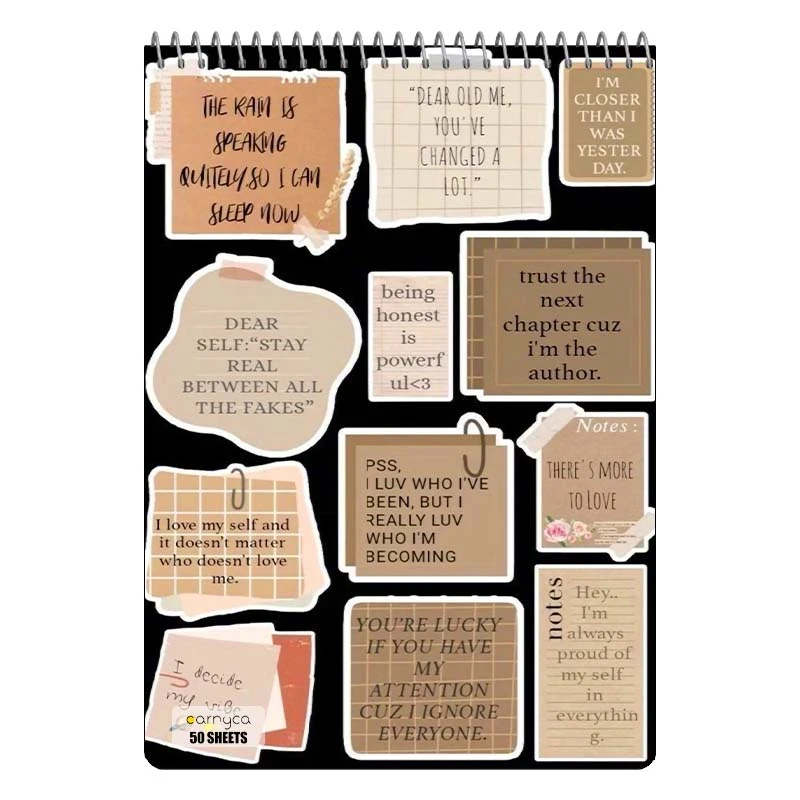 THE RAIN IS
SPEAKING
QUITELY.SO I CAN
SLEEP NOW
"DEAR OLD ME,
YOU'VE
CHANGED A
LOT."
I'M
CLOSER
THAN I
WAS
YESTER
DAY.
DEAR
SELF:"STAY
REAL
BETWEEN ALL
THE FAKES"
being
honest
is
powerf
ul<3
trust the
next
chapter cuz
i'm the
author.
I love my self and
it doesn't matter
who doesn't love
me.
PSS,
I LUV WHO I'VE
BEEN, BUT I
REALLY LUV
WHO I'M
BECOMING
Notes:
THERE'S MORE
TO LOVE
I decide
my vibe
carnyca
50 SHEETS
YOU'RE LUCKY
IF YOU HAVE
MY
ATTENTION
CUZ I IGNORE
EVERYONE.
notes
Hey..
I'm
always
proud of
my self
in
everythin
g.